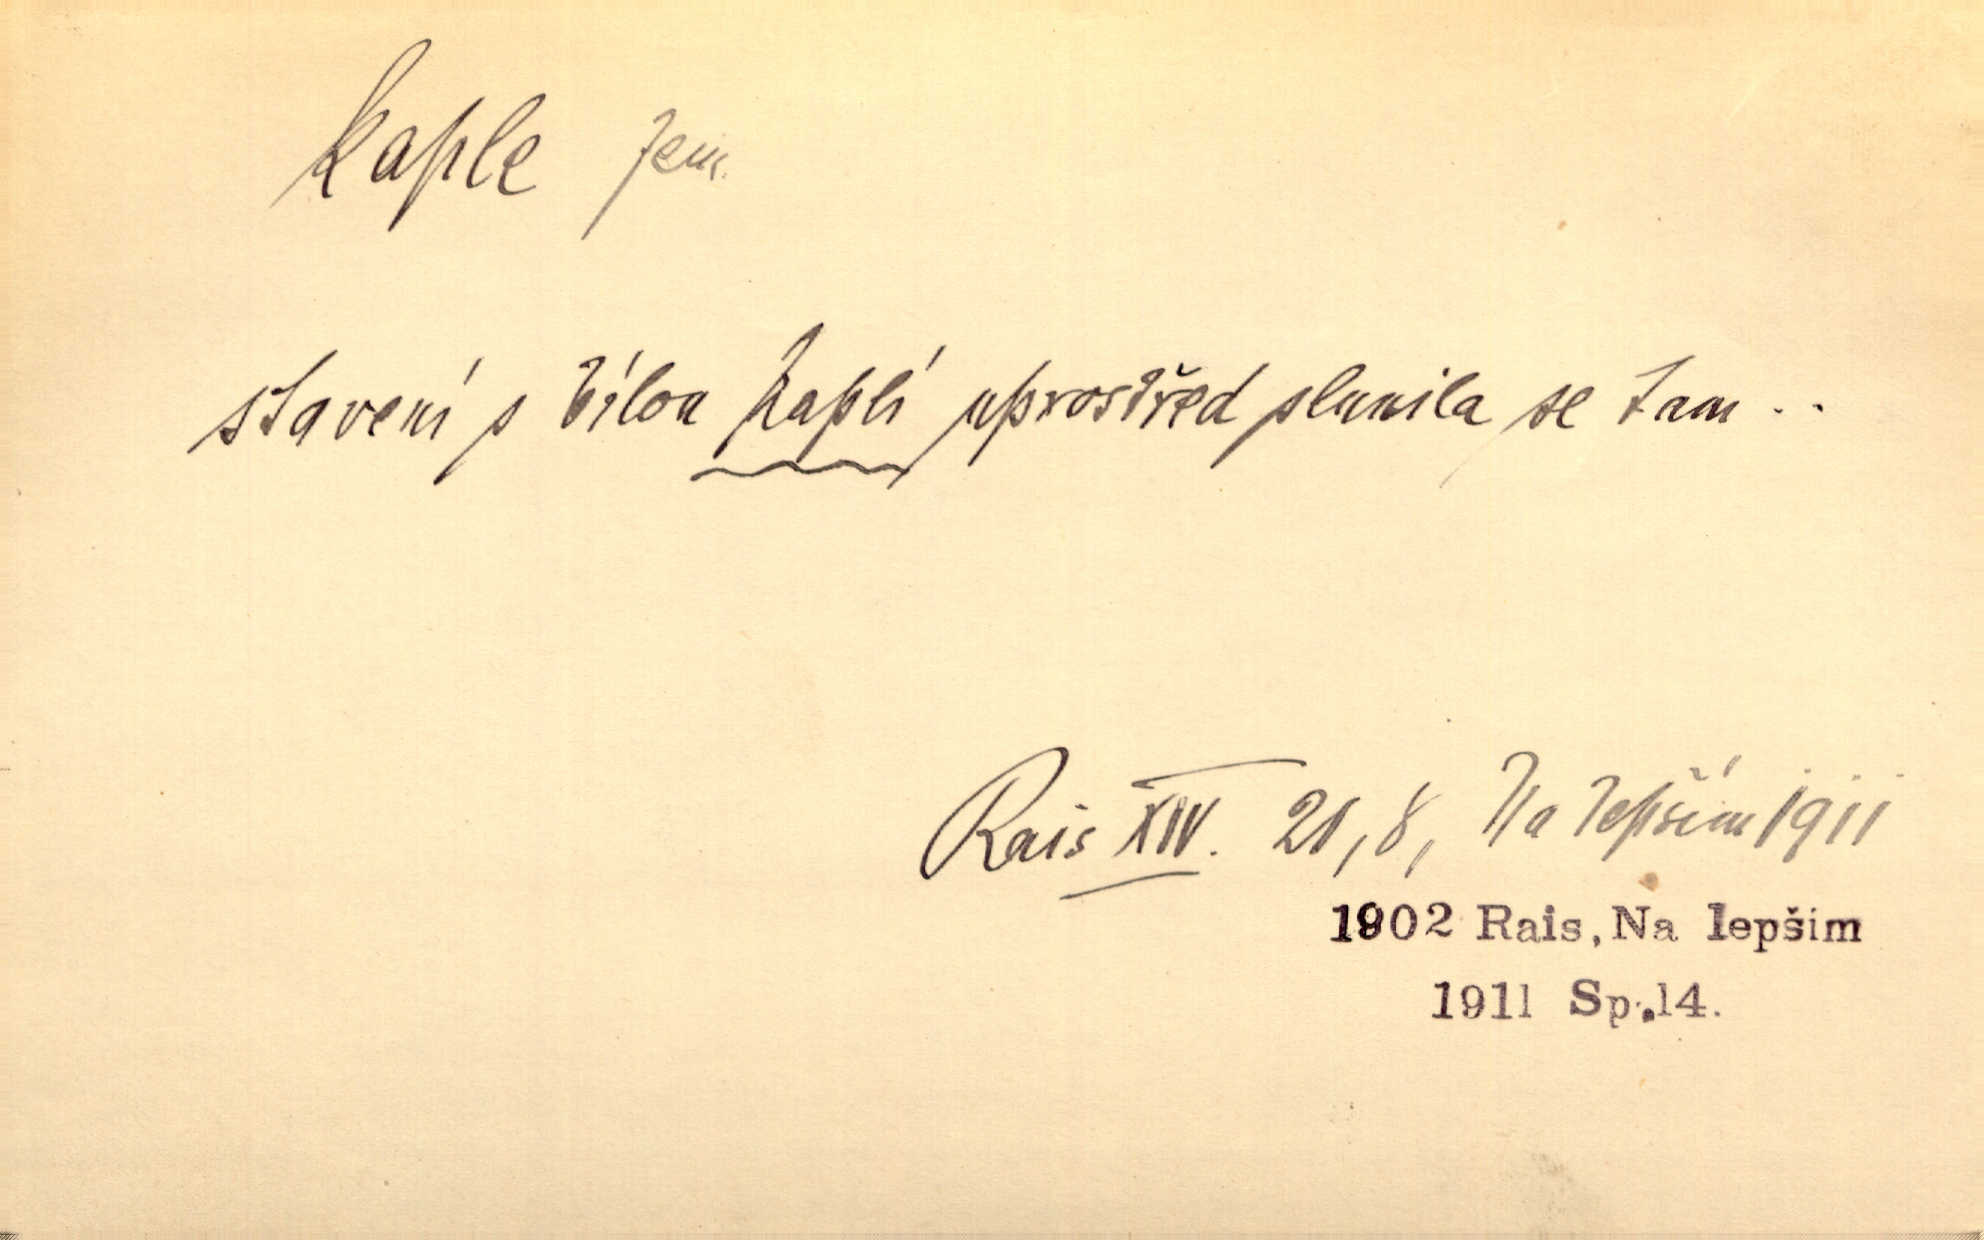 kaple fem.
stavení s bílou kaplí uprostřed slunila se tam ..
Rais XIV. 21, 8, Na lepším 1911
1902 Rais, Na lepším
1911 Sp. 14.